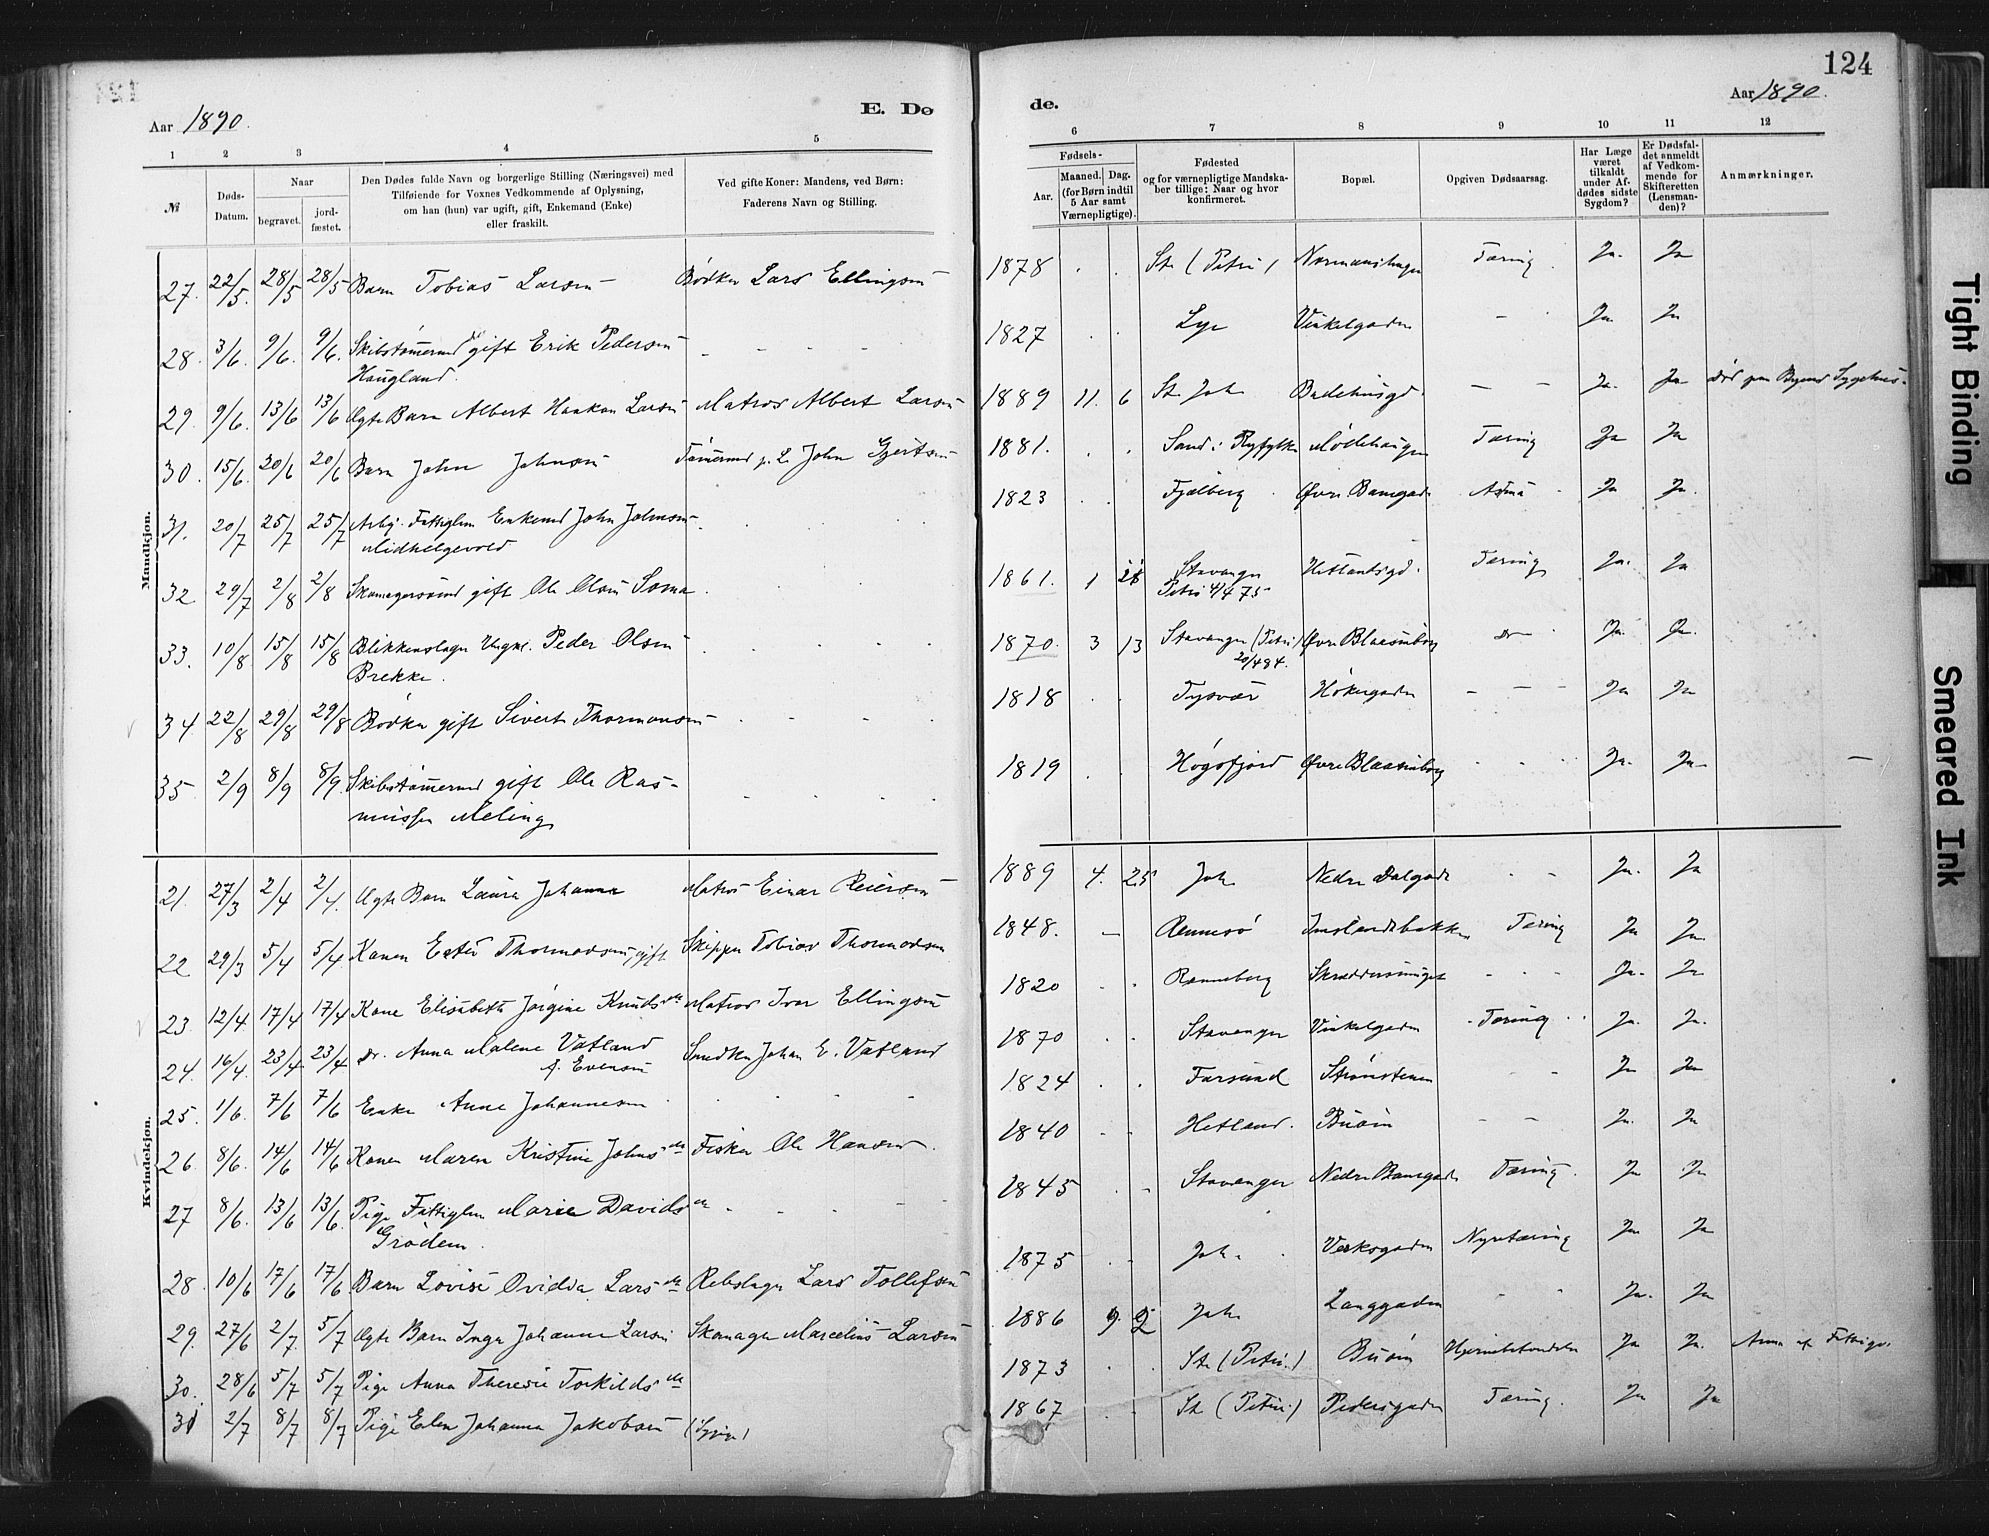 124
Aar 1890.
E. Dø
de.
Aar 1890.
1 2 3 4 5
6 7 8 9 10 11 12
№
Døds-
Datum.
Naar
begravet.
jord-
fæstet.
Den Dødes fulde Navn og borgerlige Stilling (Næringsvei) med
Tilføiende for Voxnes Vedkommende af Oplysning,
om han (hun) var ugift, gift, Enkemand (Enke)
eller fraskilt.
Ved gifte Koner: Mandens, ved Børn:
Faderens Navn og Stilling.
Fødsels-
Aar.
Maaned. Dag.
(for Børn indtil
5 Aar samt
Værnepligtige).
Fødested
og for værnepligtige Mandska-
ber tillige: Naar og hvor
konfirmeret.
Bopæl.
Opgiven Dødsaarsag.
Har Læge
været
tilkaldt
under Af-
dødes sidste
Sygdom?
Er Dødsfal-
det anmeldt
af Vedkom-
mende for
Skifteretten
(Lensman-
den)?
Anmærkninger.
Mandkjøn.
27. 22/5. 28/5 28/5 Barn Tobias Larsen Bødker Lars Ellingsen 1878 St. (Petri) Tæring Ja. Ja
28. 3/6. 9/6. 9/6. gift Erik Pedersen 1827 Lye Vinkelgaden Ja. Ja
Haugland.
29. 9/6. 13/6 13/6 Ægte Barn Albert Haakon Larsen Matros Albert Larsen 1889 11. 6 St. Joh Badehusgd. Ja. Ja
30. 15/6. 20/6 20/6 Barn John Johnsen John Gjertsen 1881. Sand i Ryfylke Møllehaugen Tæring Ja Ja
31. 20/7 25/7 25/7 Arbj. Fattiglem Enkemd John Johnsen 1823 Fjælberg Øvre Banegade Astma Ja Ja.
Midhelgevold
32 29/7 2/8 2/8 Skomagersvend gift Ole Olsen Soma 1861. 1 Stavanger Hetlandsgd. Tæring Ja. Ja
Petri 4/4 75
33. 10/8 15/8 15/8 Blikkenslager Ungk. Peder Olsen 1870. 3 13 Stavanger (Petri) Øvre Blaasenborg do Ja. Ja.
Brekke. 20/4 84.
34 22/8 29/8 29/8 Bødker gift Sivert Thormodsen 1818 Tysvær Høkergaden Ja Ja
35 2/9 8/9 8/9. Skibstømmermd gift Ole Ras- 1819 Høgsfjord Øvre Blaasenborg Ja. Ja
mussen Meling
Kvindekjøn.
21. 27/3 2/4 2/4. Ægte Barn Laura Johanna Matros Einar Reiersen 1889 4. 25 Joh Nedre Dalgade Ja. Ja
22 29/3 5/4 5/4. Konen Ester Thormodsen, gift Skipper Tobias Thormodsen 1848. Rennesø Tæring Ja Ja.
23 12/4 17/4 17/4 Kone Elisabeth Jørgine Knudsdtr Matros Ivar Ellingsen 1820 Ranneberg Skræddersmuget Ja. Ja
24. 16/4. 23/4 23/4 do. Anna Malene Vatland Snedker Johan E. Vatland 1870 Stavanger Vinkelgaden Tæring Ja. Ja.
f. Evensen
25. 1/6. 7/6 7/6 Enke Anne Johannesen 1824 Farsund Strømstenen Ja Ja
26. 8/6. 14/6 14/6 Konen Maren Kristine Johnsdtr Fisker Ole Hansen 1840 Hetland. Buøen Ja. Ja
27 8/6. 13/6 13/6. Pige Fattiglem Marie Davidsdtr 1845 Stavanger Nedre Banegade Tæring. Ja Ja
Grødem.
28. 10/6 17/6 17/6 Barn Lovise Ovidda Larsdtr Rebslager Lars Tollefsen 1875 Joh. Verksgaden Nyretæring Ja Ja
29. 27/6 2/7 5/7 Ægte Barn Inga Johanne Larsen Skomager Marcelius Larsen 1886 9. 2 Joh Langgaden Ja. Ja
30. 28/6 5/7 5/7 Pige Anna Theresie Torkildsdtr 1873 St. (Petri.) Buøen Hjernebetændelse Ja Ja. Anna af Fattigv.
31 2/7 8/7 8/7 Pige Elen Johanna Jakobsen 1867 St (Petri.) Pedersgaden Tæring. Ja Ja
Tight Binding
Smeared Ink